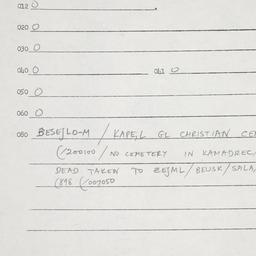 012 0
020 0
030 0
040 0 041 0
050 0
060 0
080 BESEJLO-M / KAPE,L GL CHRISTIAN CE
(1200100 / NO CEMETERY IN KAMADREC,
DEAD TAKEN TO ZEJML/ BEUSK/ SALA,
(898 (/007050